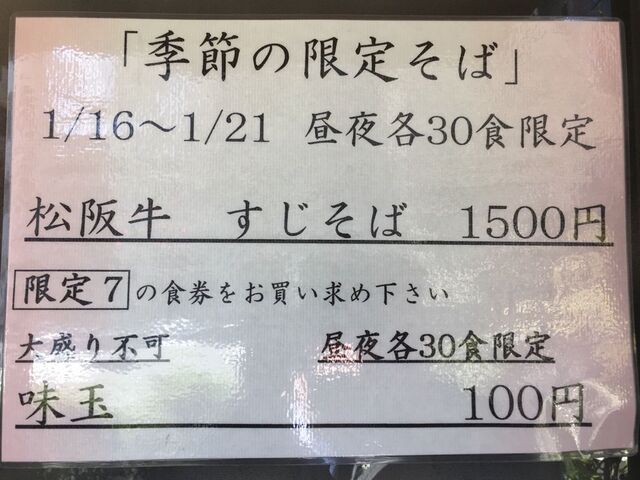 「季節の限定そば」
1/16～1/21 昼夜各30食限定
松阪牛 すじそば 1500円
限定7の食券をお買い求め下さい
大盛り不可 昼夜各30食限定
味玉 100円